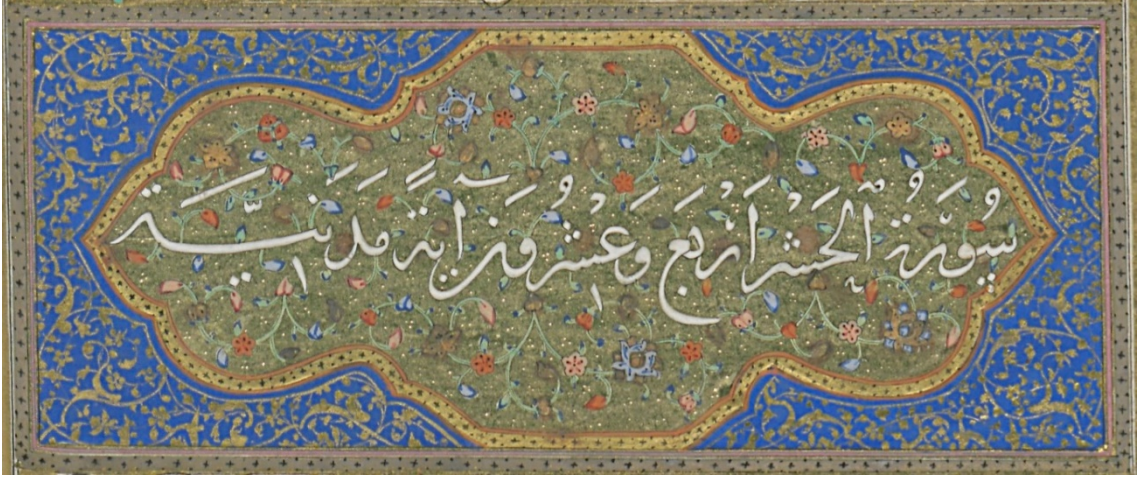 سُورَةُ الحَشْرِ أَرْبَعٌ وَعِشْرُونَ آيَةً مَدَنِيَّةٌ